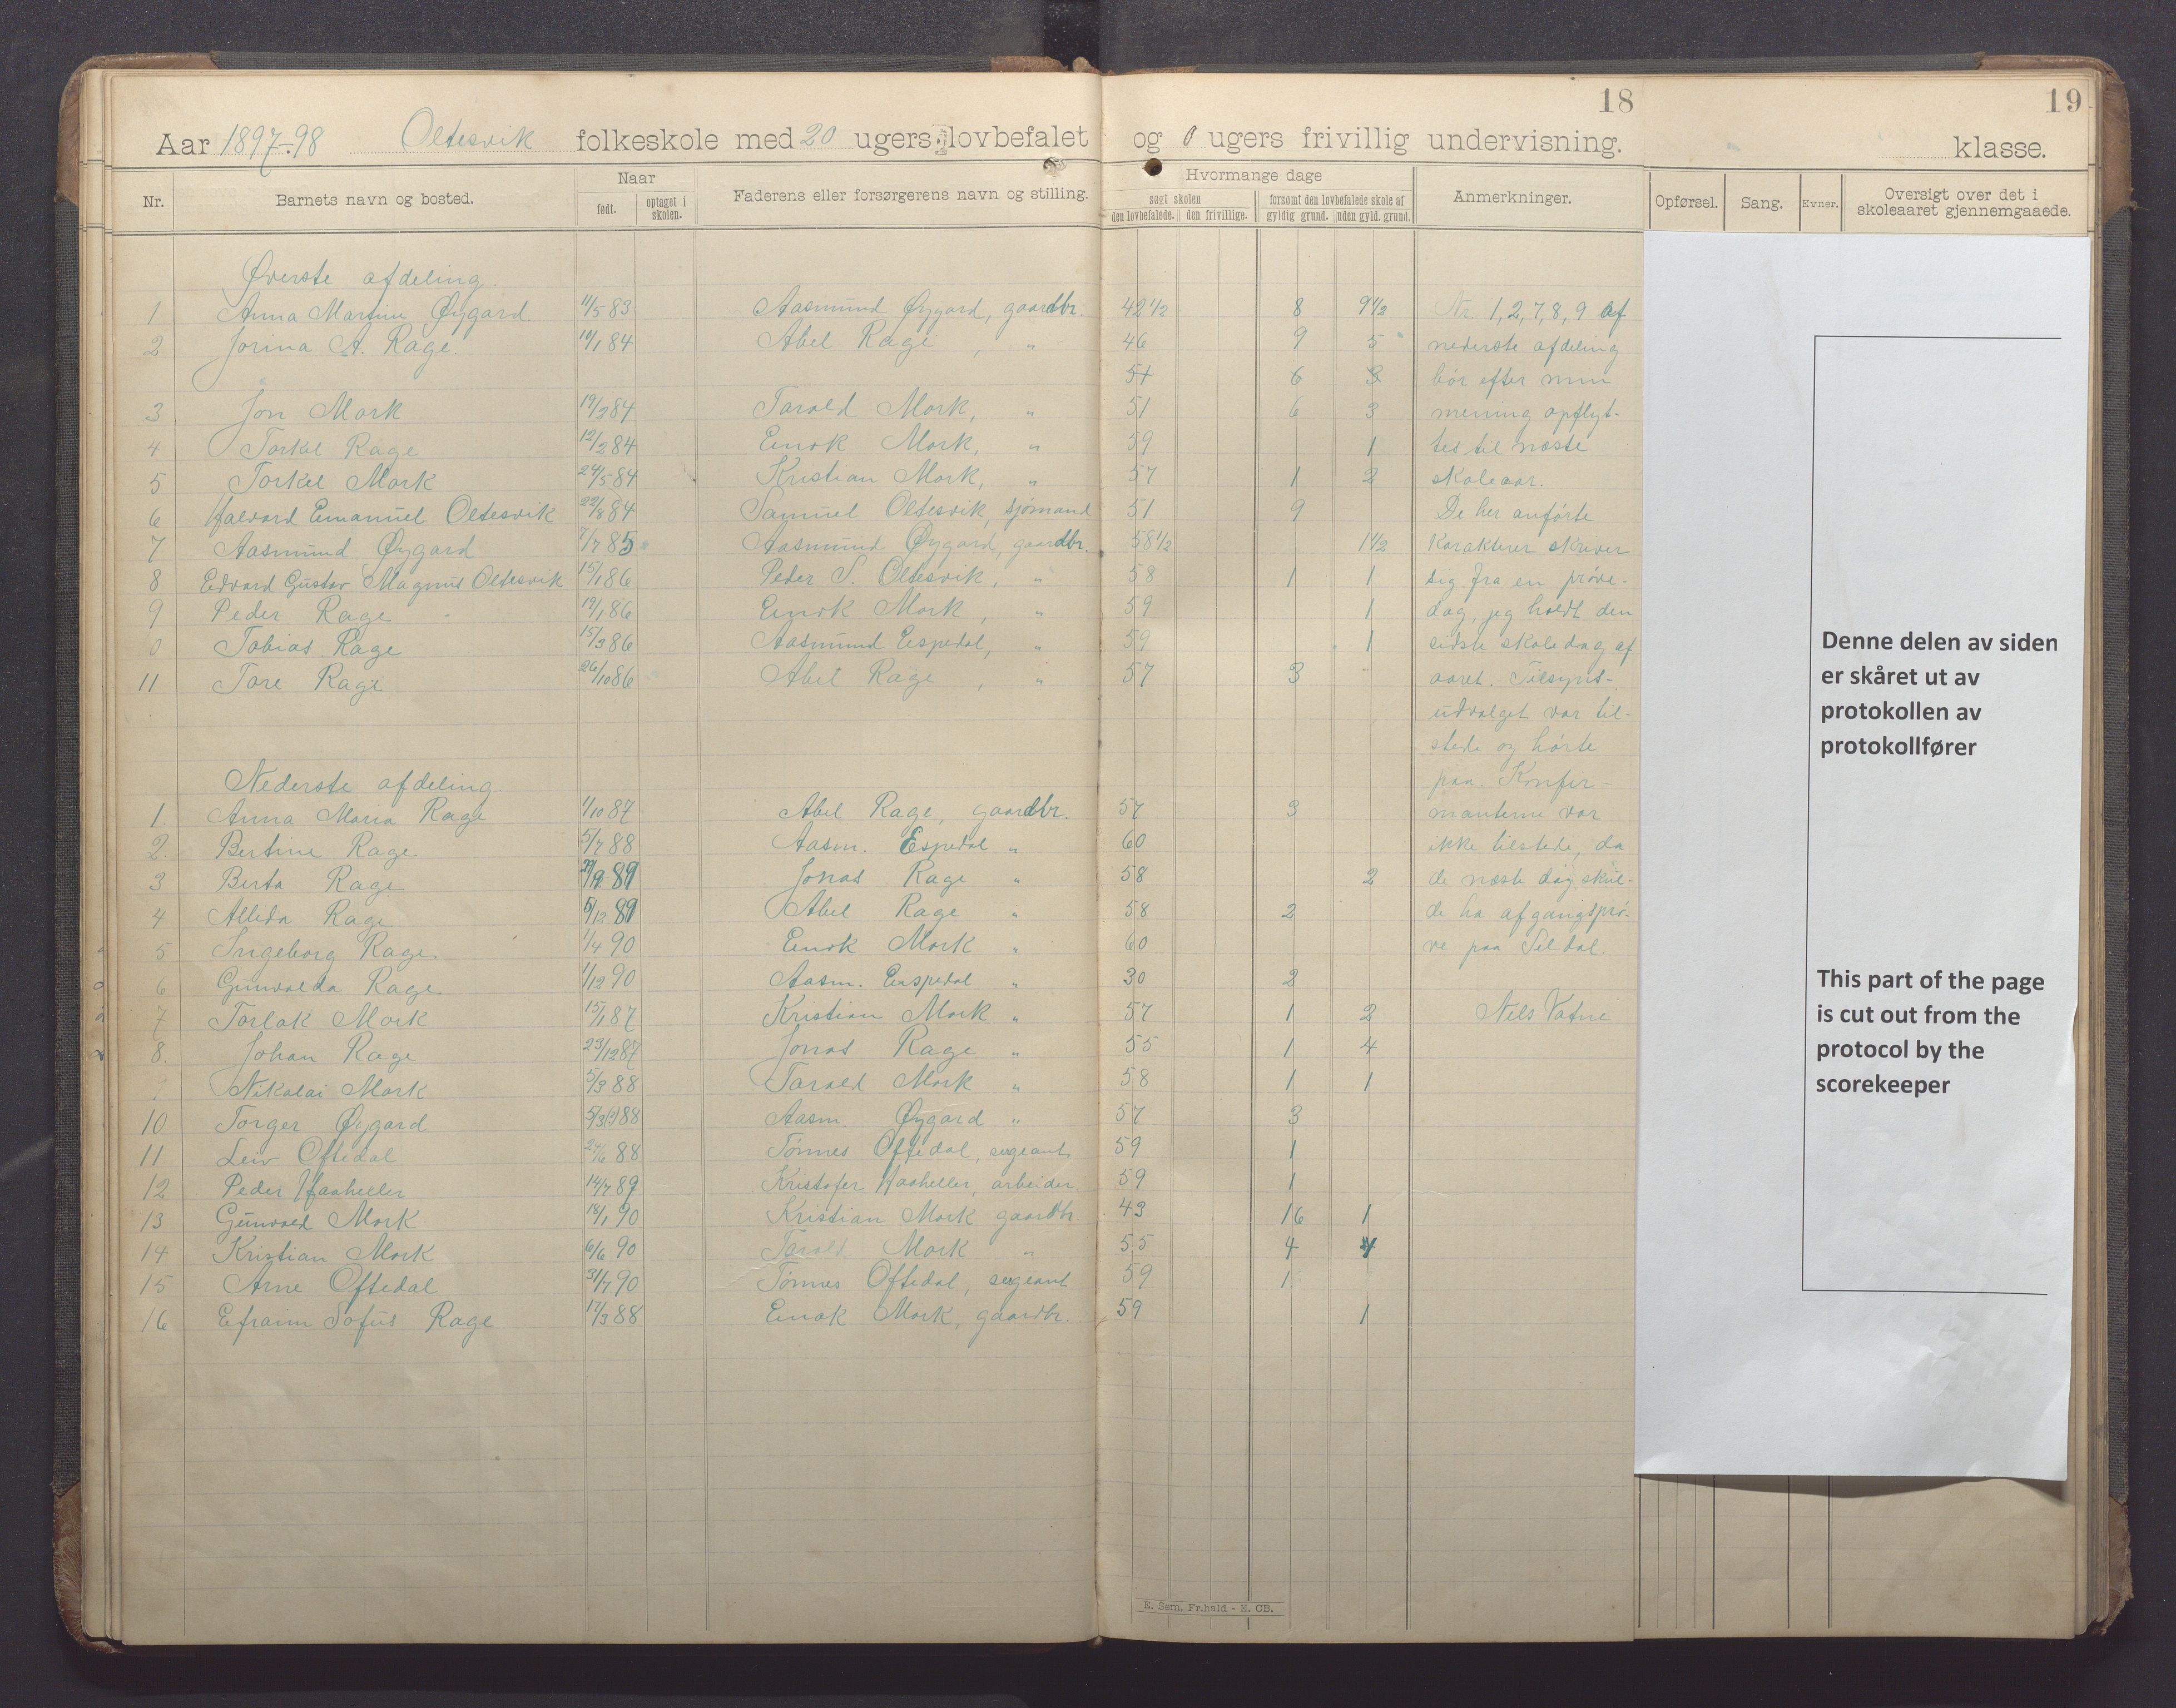 18
19
Aar 1897-98 Oltesvik folkeskole med 20 ugers lovbefalet og 0 ugers frivillig undervisning. klasse.
Nr. Barnets navn og bosted. Naar født. optaget i skolen. Faderens eller forsørgerens navn og stilling. Hvormange dage søgt skolen den lovbefalede. den frivillige. forsømt den lovbefalede skole af gyldig grund. uden gyld. grund. Anmerkninger. Opførsel. Sang. Evner. Oversigt over det i skoleaaret gjennemgaaede.
Øverste afdeling.
1 Anna Martine Øygard 11/5 83 Aasmund Øygard, gaardbr. 42 1/2 8 9 1/2 Nr. 1, 2, 7, 8, 9 af
2 Jorina A. Rage. 14/1 84 Abel Rage, " 46 9 5 nederste afdeling
51 6 3 bør efter min
3 Jon Mork 19/2 84 Tarald Mork, " 51 6 3 mening opflyt-
4 Torkel Rage 12/2 84 Enok Mork, " 59 1 tes til næste
5 Torkel Mork 24/5 84 Kristian Mork, " 57 1 2 skoleaar.
6 Halvard Emanuel Oltesvik 22/8 84 Samuel Oltesvik, sjømand 51 9 De her anførte
7 Aasmund Øygard 7/7 85 Aasmund Øygard, gaardbr. 58 1/2 1 1/2 karakterer skriver
8 Edvard Gustav Magnus Oltesvik 15/1 86 Peder S. Oltesvik, " 58 1 1 sig fra en prøve-
9 Peder Rage 19/1 86 Enok Mork, " 59 1 dag, jeg holdt den
0 Tobias Rage 15/3 86 Aasmund Espedal, " 59 1 sidste skoledag af
11 Tore Rage 26/10 86 Abel Rage, " 57 3 - aaret. Tilsyns-
udvalget var til-
stede og hørte
Nederste afdeling paa. Konfir-
1. Anna Maria Rage 1/10 87 Abel Rage, gaardbr. 57 3 manterne var
2. Bertine Rage 5/7 88 Aasm. Espedal " 60 ikke tilstede, da
3 Berta Rage 89 Jonas Rage " 58 2 de næste dag skul-
4 Allida Rage 5/12 89 Abel Rage " 58 2 de ha afgangsprø-
5 Ingeborg Rage. 1/4 90 Enok Mork " 60 ve paa Seldal.
6 Gunvalda Rage. 1/12 90 Aasm. Espedal " 30 2
7 Torlak Mork 15/1 87 Kristian Mork " 57 1 2 Nels Vatne
8. Johan Rage 23/12 87 Jonas Rage " 55 1 4
9 Nikolai Mork 5/3 88 Tarald Mork " 58 1 1
10 Torger Øygard 88 Aasm. Øygard " 57 3
11 Leiv Oftedal 88 Tønnes Oftedal, sergeant 59 1
12 Peder Haaheller 14/7 89 Kristofer Haaheller, arbeider 59 1
13 Gunvald Mork 18/1 90 Kristian Mork gaardbr. 43 16 1
14 Kristian Mork 6/6 90 Tarald Mork " 55 4
15 Arne Oftedal 31/7 90 Tønnes Oftedal, sergeant 59 1
16 Efraim Sofus Rage 17/3 88 Enok Mork, gaardbr. 59 1
E. Sem. Fr.hald - E. CB.
Denne delen av siden
er skåret ut av
protokollen av
protokollfører
This part of the page
is cut out from the
protocol by the
scorekeeper